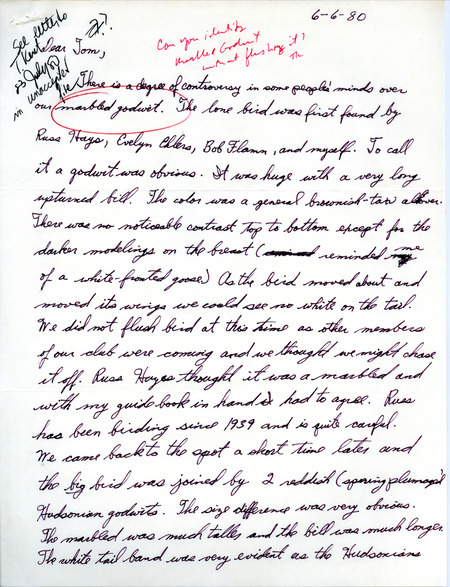 6-6-80
See letter to
T. Kent
23 July 80
in unaccepted
file
??
Can you identify
marbled Godwit
without flushing it?
TK
Dear Tom,
There is a degree of controversy in some people's minds over
our marbled godwit. The lone bird was first found by
Russ Hays, Evelyn Ehlers, Bob Flamm, and myself. To call
it a godwit was obvious. It was huge with a very long
upturned bill. The color was a general brownish-tan allover.
There was no noticeable contrast top to bottom epcept for the
darker modelings on the breast ( reminded me
of a white-fronted goose) As the bird moved about and
moved its wings we could see no white on the tail.
We did not flush bird at this time as other members
of our club were coming and we thought we might chase
it off. Russ Hayes thought it was a marbled and
with my guide book in hand I had to agree. Russ
has been birding since 1939 and is quite careful.
We came back to the spot a short time later and
the big bird was joined by 2 reddish (spering plumaged
Hudsonian godwits. The size difference was very obvious.
The marbled was much taller and the bill was much longer.
The white tail band was very evident as the Hudsonians